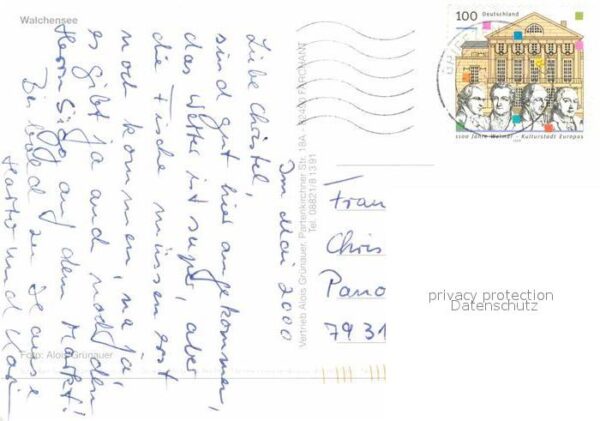 Walchensee
Im Mai 2000
Liebe Christel,
sind gut hier angekommen,
das Wetter ist super, aber
die Fische müssen erst
noch kommen, na ja,
es gibt ja auch noch den
Herrn Sigo auf dem Markt!
Bis bald zu Hause
und
Foto: Alois Grünauer
Vertrieb Alois Grünauer, Partenkirchner Str. 18A · 82490 FARCHANT
Tel. 08821/61391
100 Deutschland
1100 Jahre Weimar - Kulturstadt Europas
1999
Frau
Chris
Pano
7931
privacy protection
Datenschutz